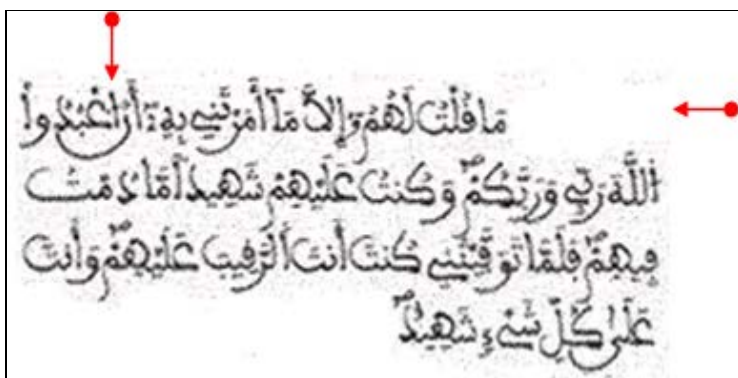 مَا قُلْتُ لَهُمُۥٓ إِلَّا مَآ أَمَرْتَنِے بِهِۦٓ أَنُ اُعْبُدُواْ
اُللَّهَ رَبِّے وَرَبَّكُمْ وَكُنتُ عَلَيْهِمْ شَهِيداً مَّا دُمْتُ
فِيهِمْ فَلَمَّا تَوَفَّيْتَنِے كُنتَ أَنتَ اَلرَّقِيبَ عَلَيْهِمْ وَأَنتَ
عَلَىٰ كُلِّ شَےْءٍ شَهِيدٌ